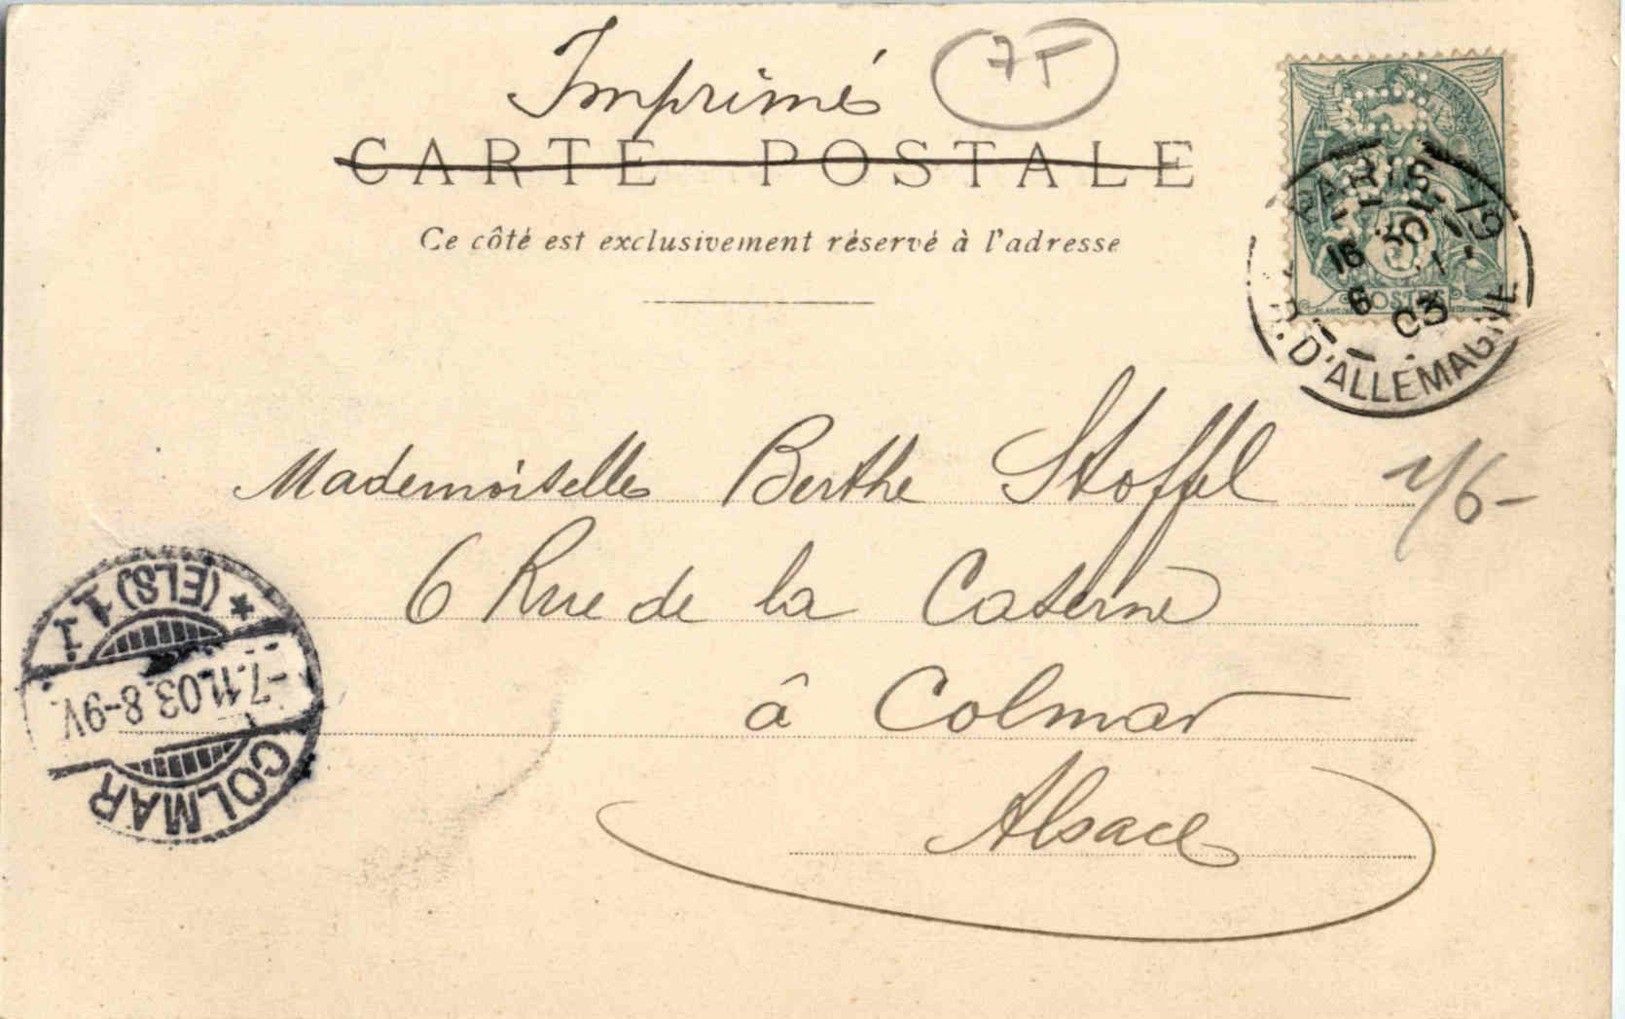 Imprimés
7T
CARTE POSTALE
Ce côté est exclusivement réservé à l'adresse
PARIS 19
16 30
6 03
R. D'ALLEMAGNE
POSTES
Mademoiselle Berthe Stoffel
6 Rue de la Caserne
à Colmar
Alsace
COLMAR
-7.11.03.8-9V.
* (ELS) 1 1